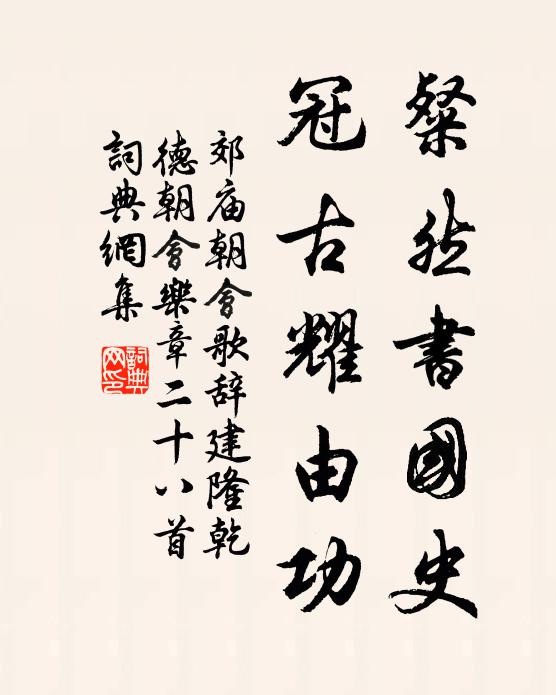 粲然書國史
冠古耀由功
郊庙朝會歌辞建隆乾
德朝會樂章二十八首
詞典網集
詞典網印